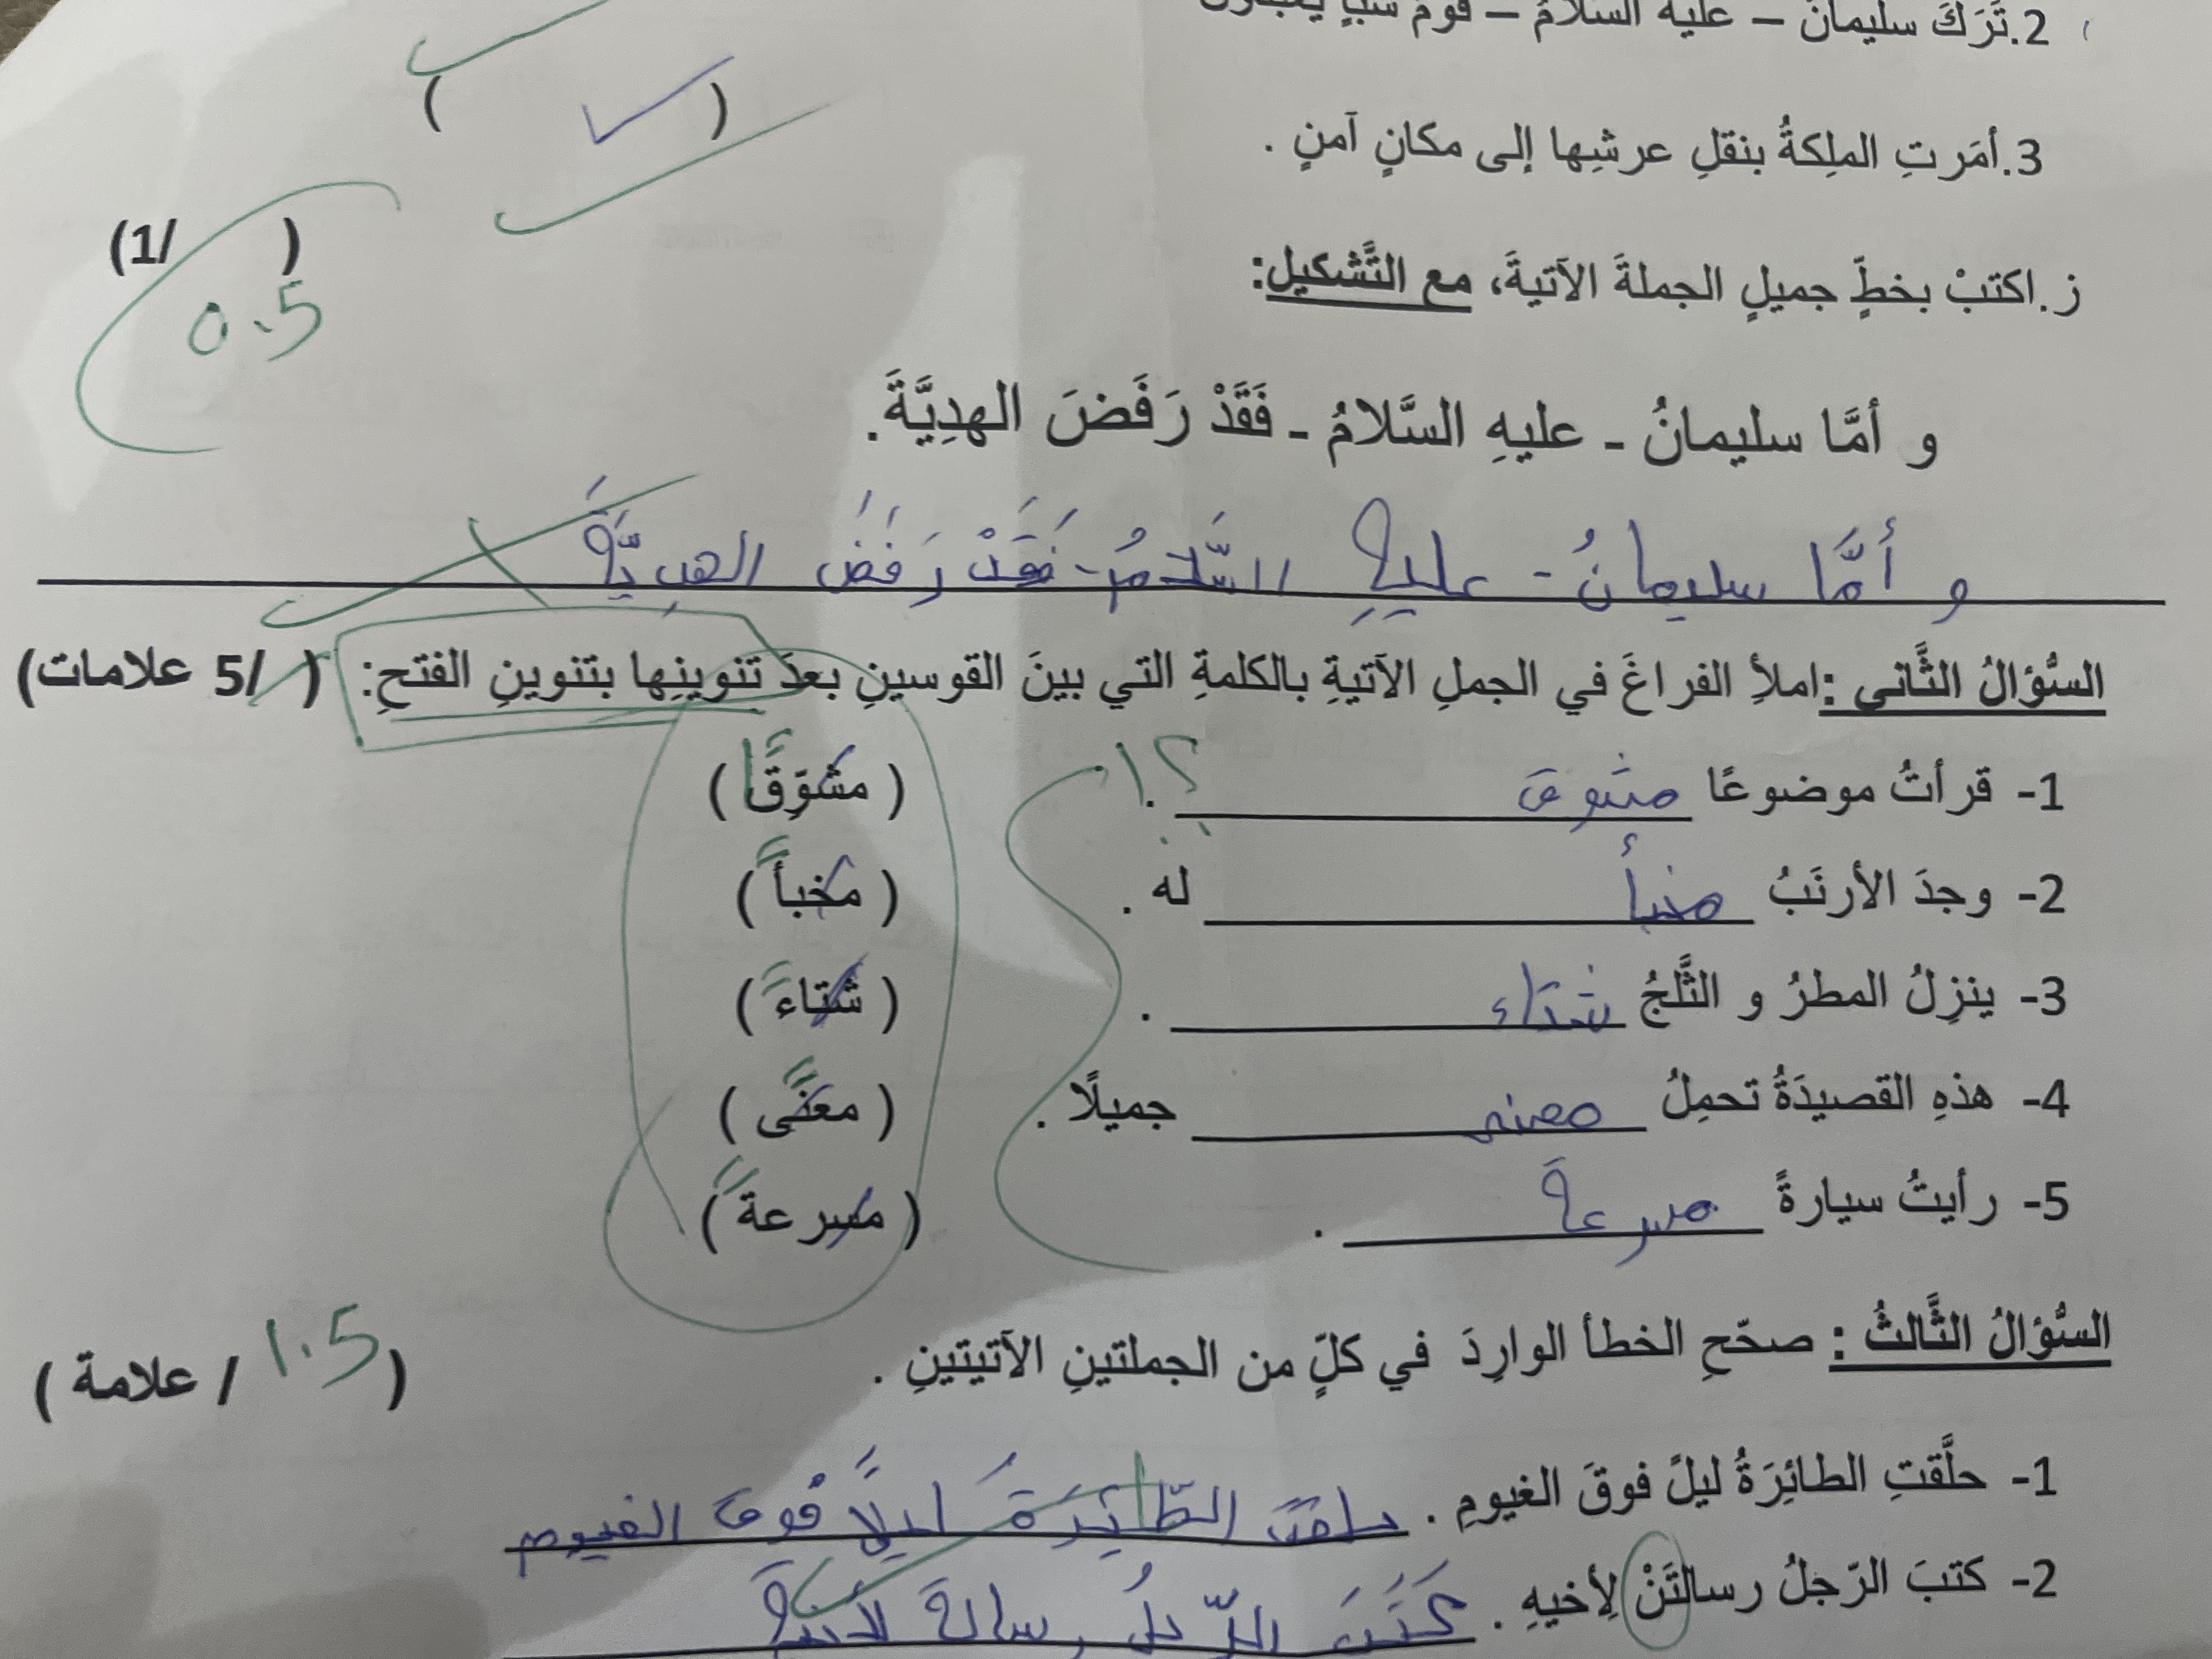 2.تَرَكَ سليمانُ – عليه السلامُ – قومَ سبإٍ
( ✓ )
3.أمَرتِ الملِكةُ بنقلِ عرشِها إلى مكانٍ آمنٍ .
ز.اكتبْ بخطٍّ جميلٍ الجملةَ الآتيةَ، مع التَّشكيلِ: ( /1)
0.5
و أمَّا سليمانُ - عليهِ السَّلامُ - فَقَدْ رَفَضَ الهدِيَّةَ.
و أمَّا سليمانُ - عليهِ السَّلامُ - فَقَدْ رَفَضَ الهدِيَّةَ
السُّؤالُ الثَّاني :املأِ الفراغَ في الجملِ الآتيةِ بالكلمةِ التي بينَ القوسينِ بعدَ تنوينِها بتنوينِ الفتحِ: ( /5 علامات)
1- قرأتُ موضوعًا مشوق . ؟! ( مشوّقًا )
2- وجدَ الأرنَبُ مخبأ له . ( مخبأً )
3- ينزِلُ المطرُ و الثَّلجُ شتاء . ( شتاءً )
4- هذهِ القصيدَةُ تحمِلُ معنى جميلًا . ( معنًى )
5- رأيتُ سيارةً مسرعة . ( مسرعةً )
السُّؤالُ الثَّالثُ : صحّحِ الخطأ الوارِدَ في كلٍّ من الجملتينِ الآتيتينِ . ( 1.5 / علامة )
1- حلَّقتِ الطائِرَةُ ليلً فوقَ الغيومِ . حلقت الطّائِرَةُ ليلًا فوق الغيوم
2- كتبَ الرّجلُ رسالتَنْ لِأخيهِ . كَتَبَ الرّجلُ رسالة لأخيه